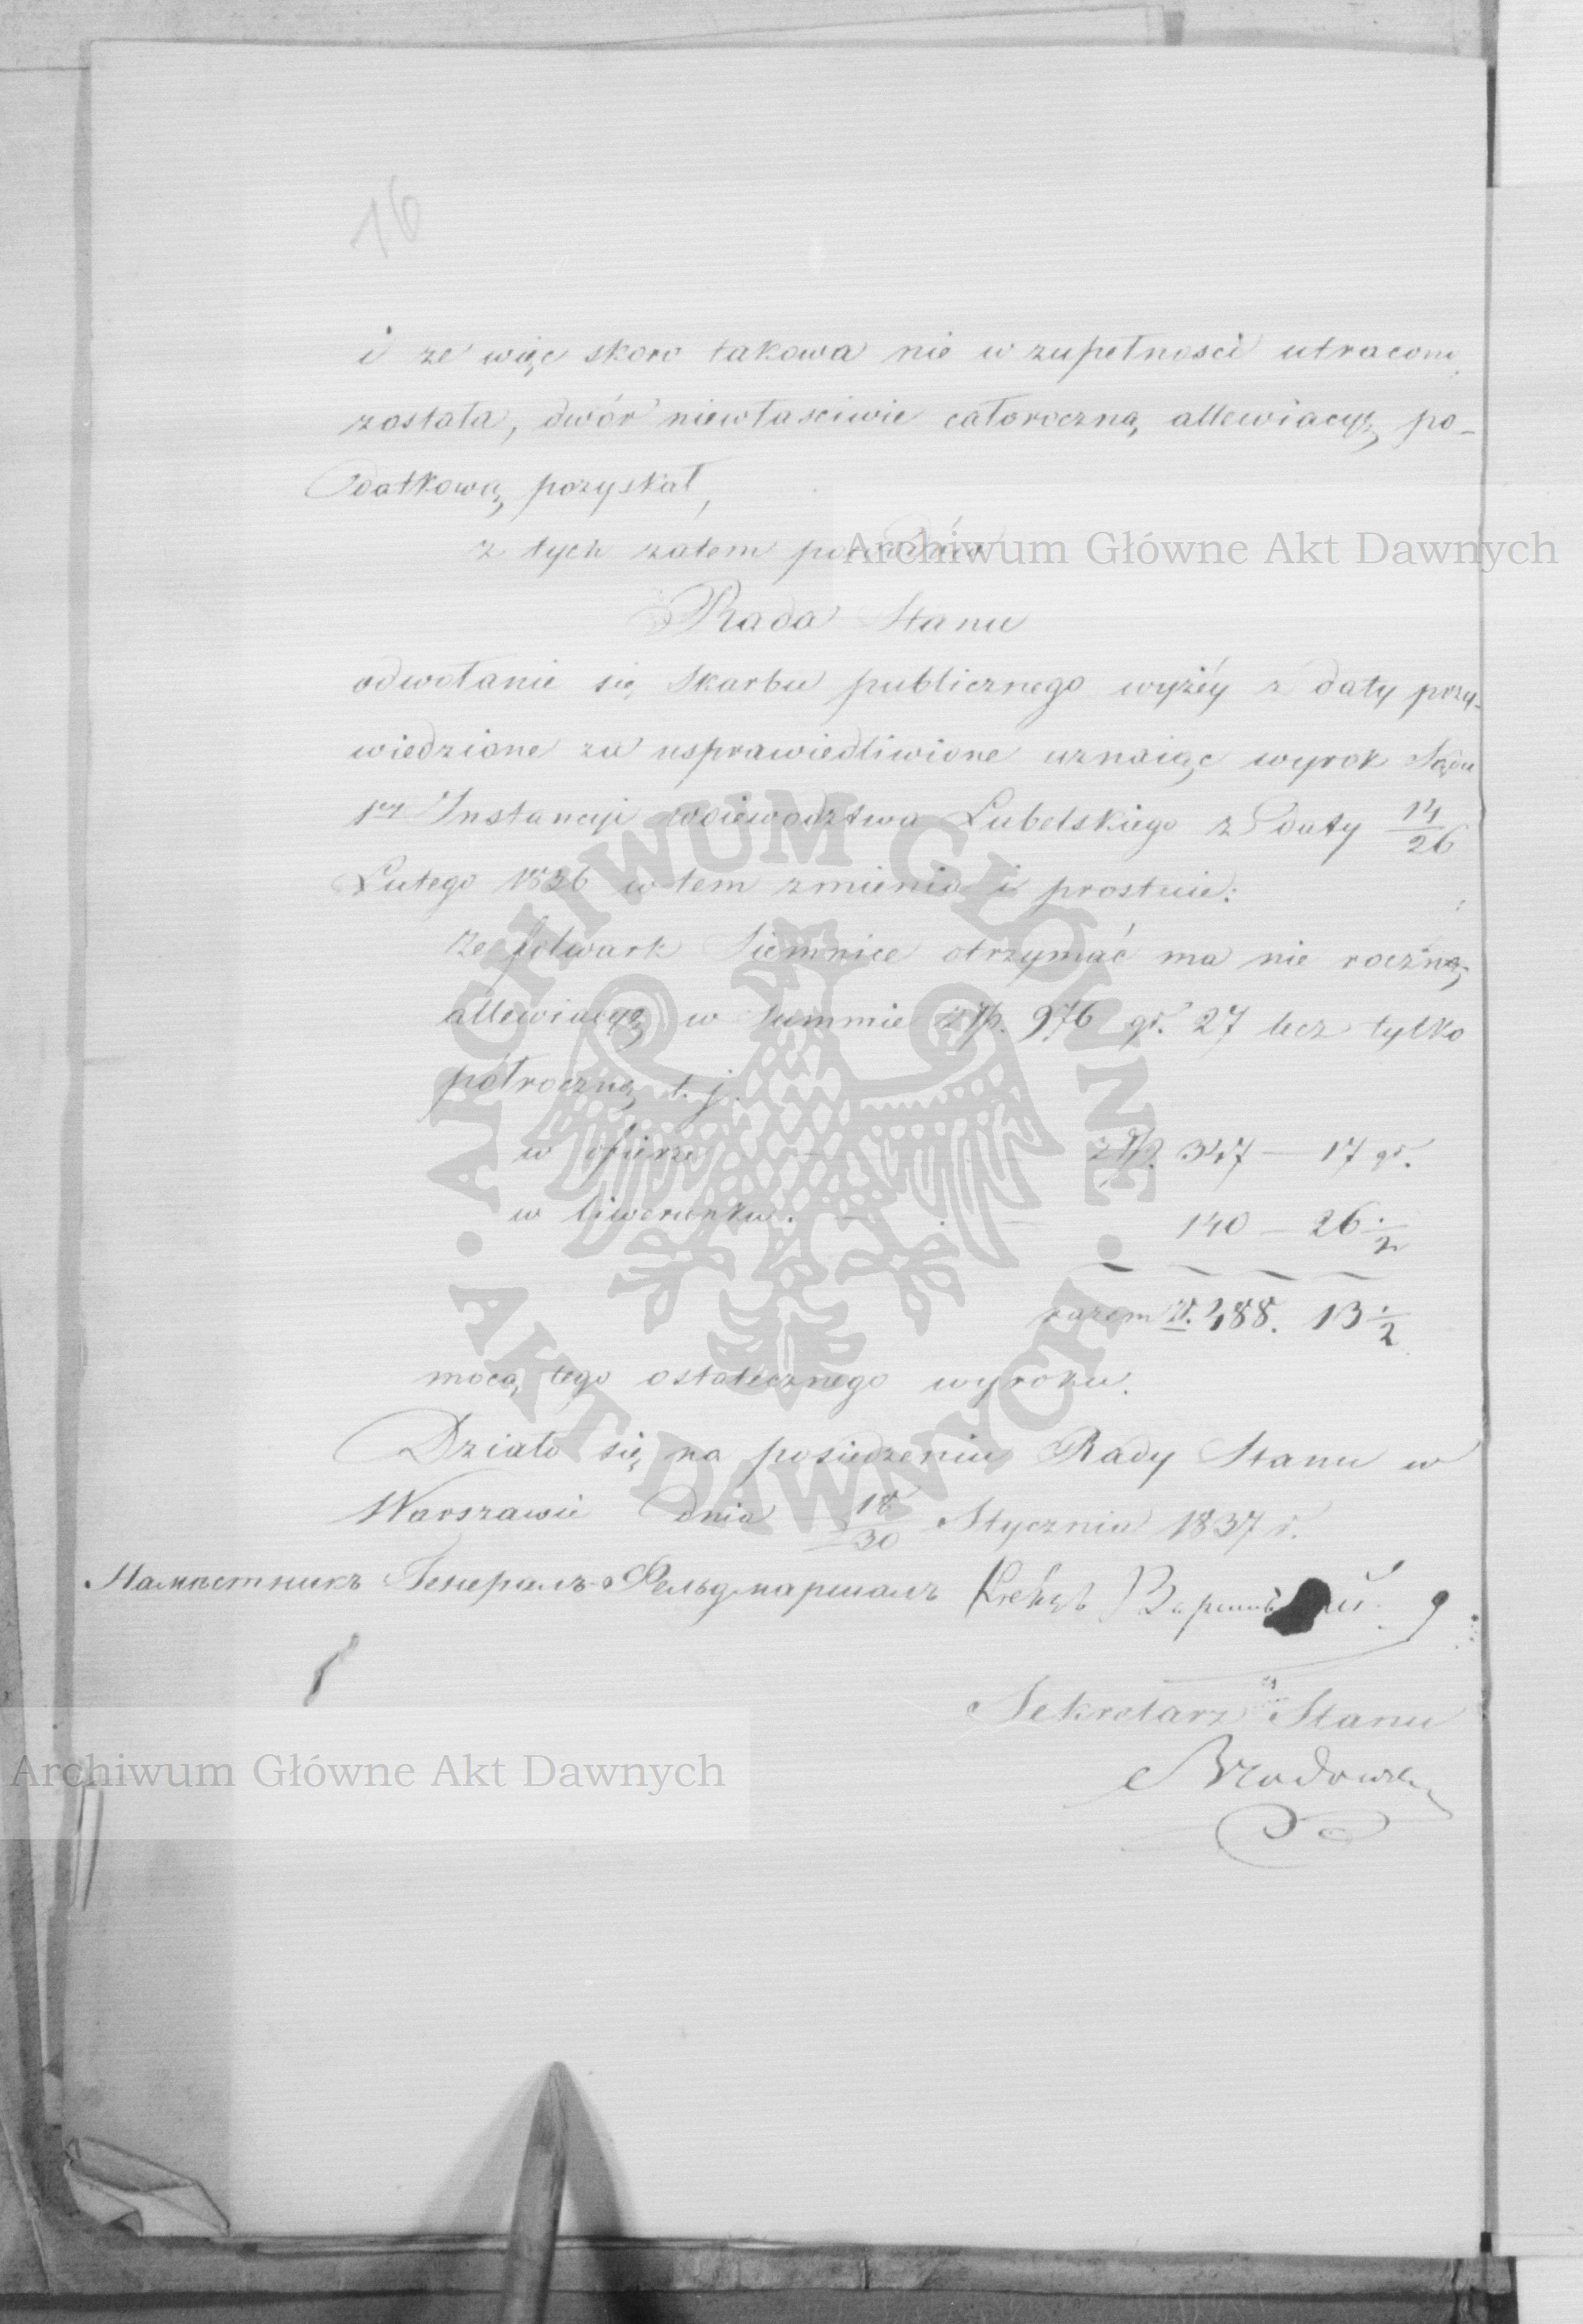 16
i że więc skoro takowa nie w zupełności utracona
została, dwór niewłaściwie całoroczną allewiacyą po-
datkową pozyskał,
z tych zatem powodów
Archiwum Główne Akt Dawnych
Rada Stanu
odwołanie się Skarbu publicznego wyżéy z daty przy-
wiedzione za usprawiedliwione uznaiąc wyrok Sądu
1éy Instancyi Woiewództwa Lubelskiego z daty 14/26
Lutego 1836 w tem zmienia i prostuie:
że folwark Siemnice otrzymać ma nie roczną
allewiacyą w Summie złp. 976 gr. 27 lecz tylko
półroczną t. j.
w ofierze — złp. 347 — 17 gr.
w liwerunku. — 140 — 26 1/2
razem zł. 488. 13 1/2
mocą tego ostatecznego wyroku.
Działo się na posiedzeniu Rady Stanu w
Warszawie dnia 18/30 Stycznia 1837 r.
Намѣстникъ Генералъ-Фельдмаршалъ Князь
Sekretarz Stanu
Brodowski
Archiwum Główne Akt Dawnych
ARCHIWUM GŁÓWNE • AKT DAWNYCH •